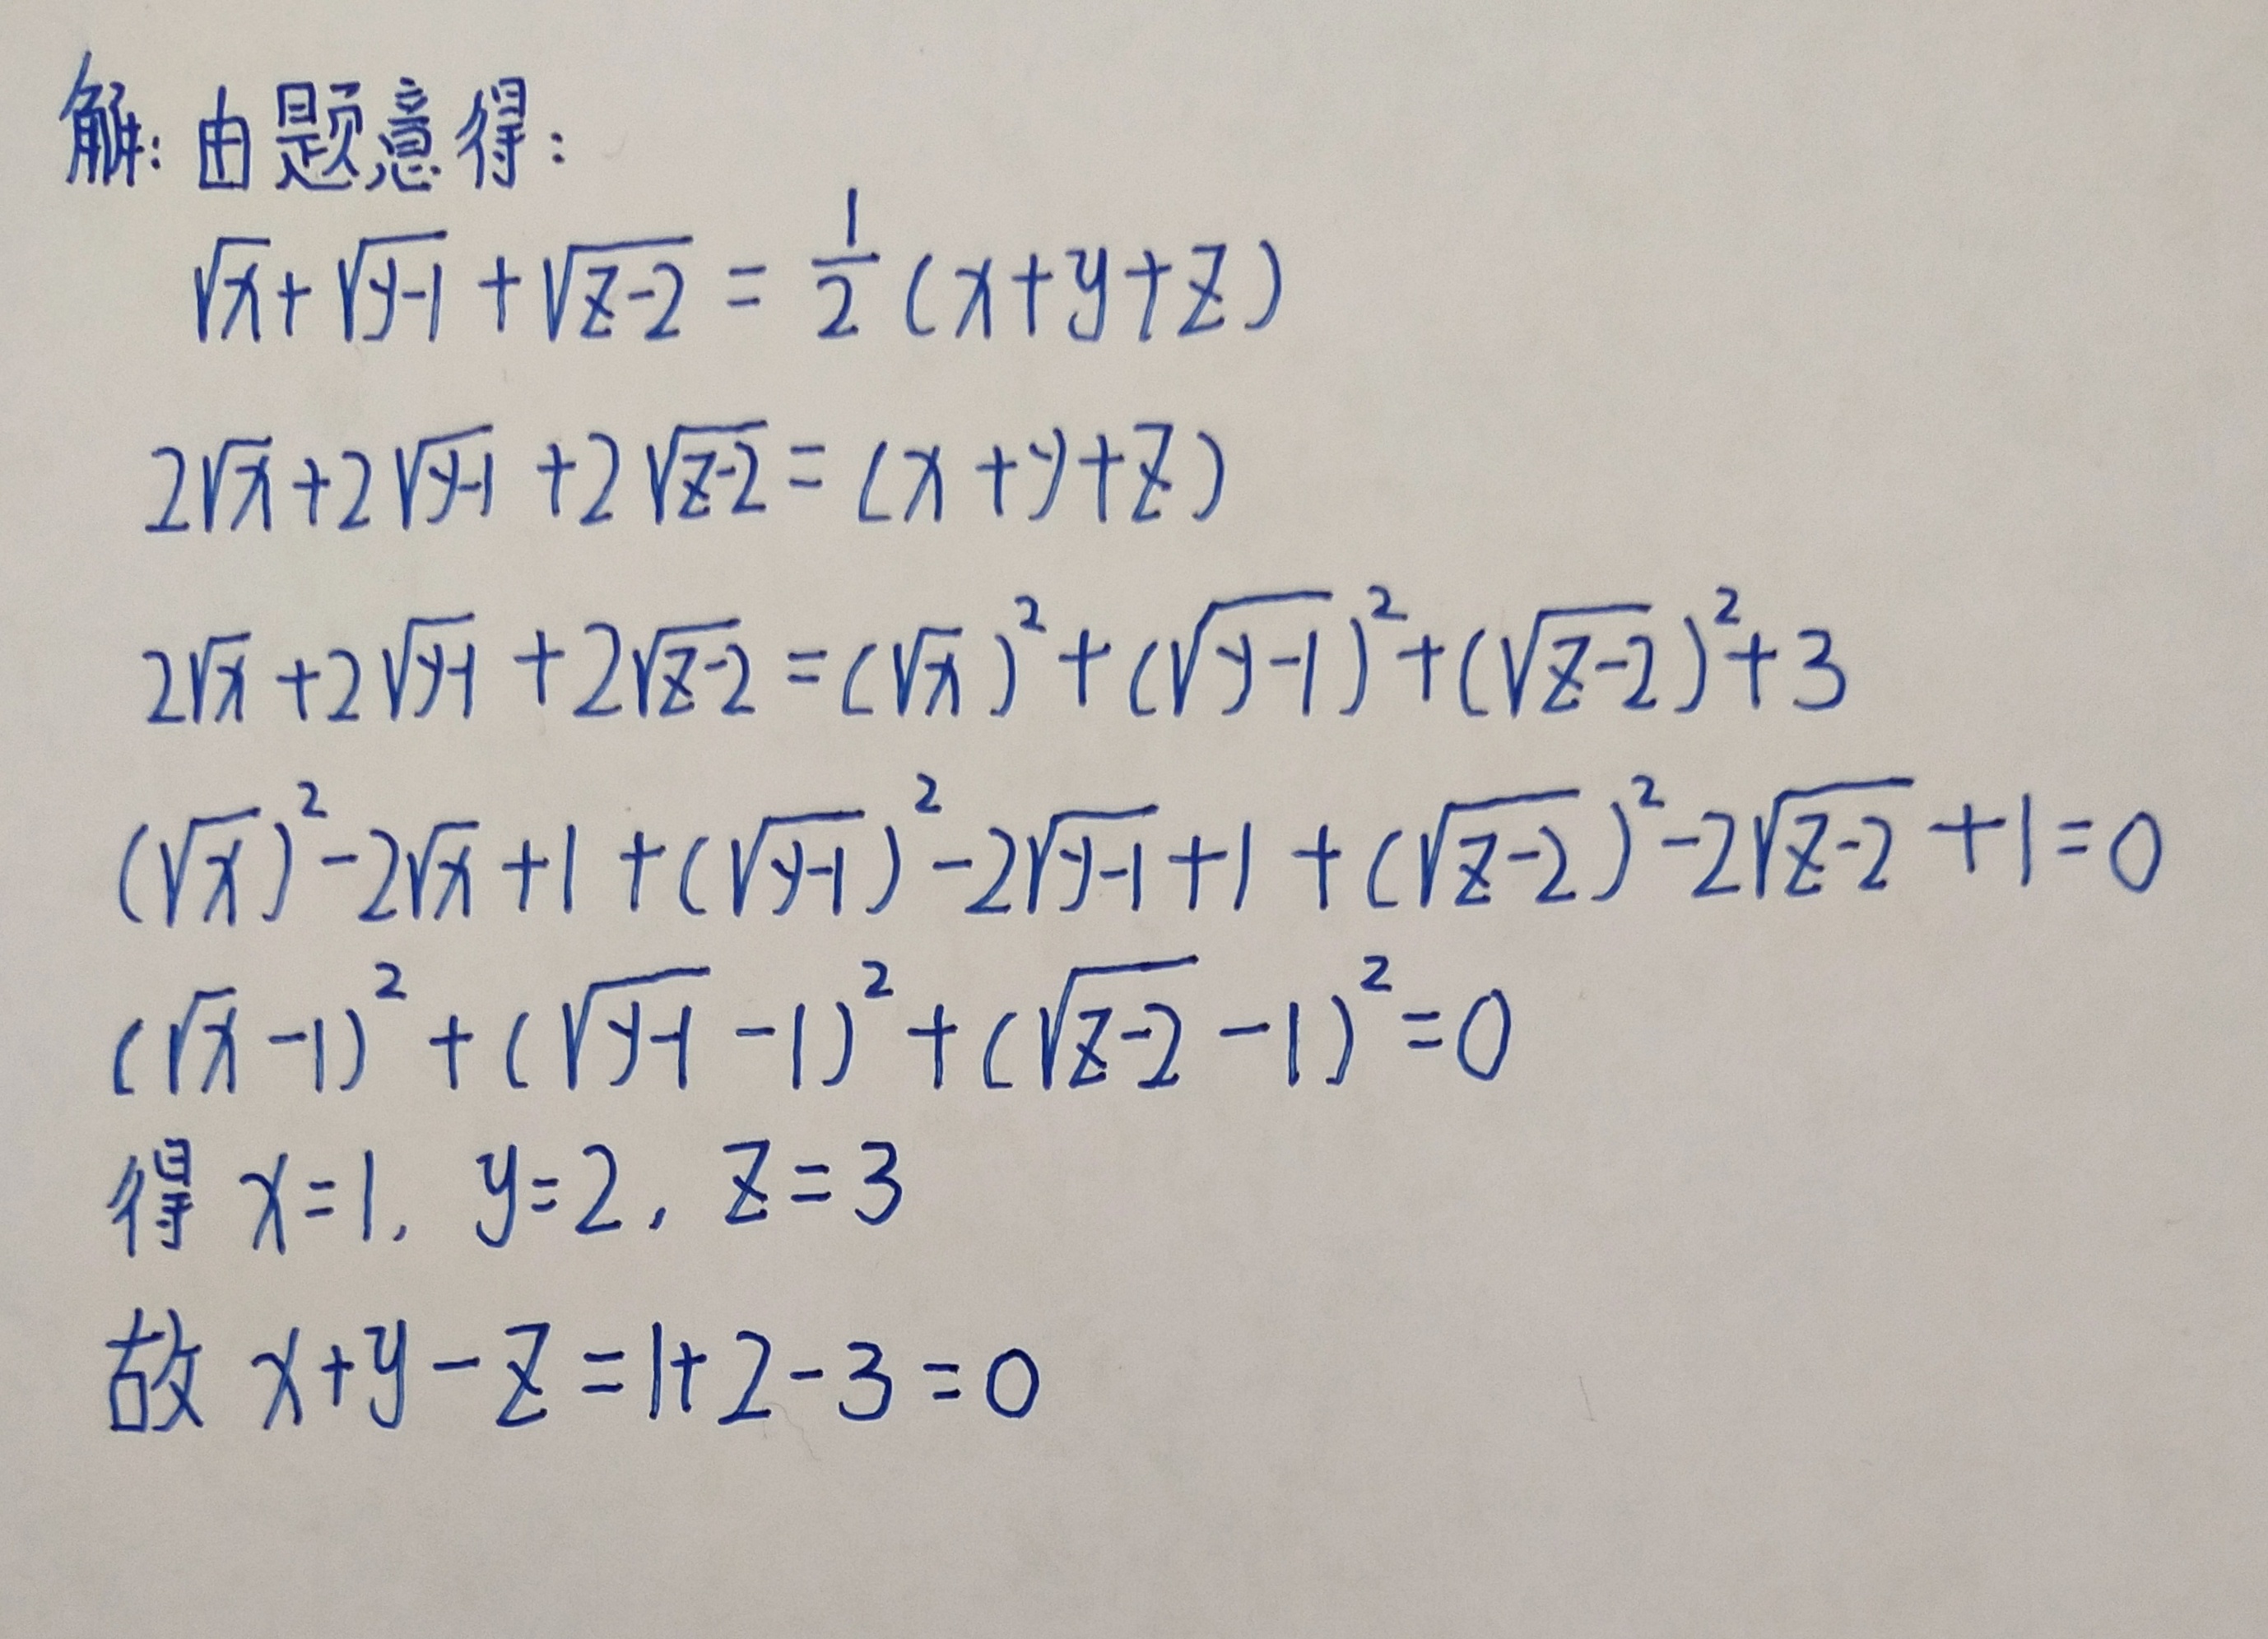 解:由题意得:
√x+√(y-1)+√(z-2)=1/2(x+y+z)
2√x+2√(y-1)+2√(z-2)=(x+y+z)
2√x+2√(y-1)+2√(z-2)=(√x)²+(√(y-1))²+(√(z-2))²+3
(√x)²-2√x+1+(√(y-1))²-2√(y-1)+1+(√(z-2))²-2√(z-2)+1=0
(√x-1)²+(√(y-1)-1)²+(√(z-2)-1)²=0
得 x=1, y=2, z=3
故 x+y-z=1+2-3=0